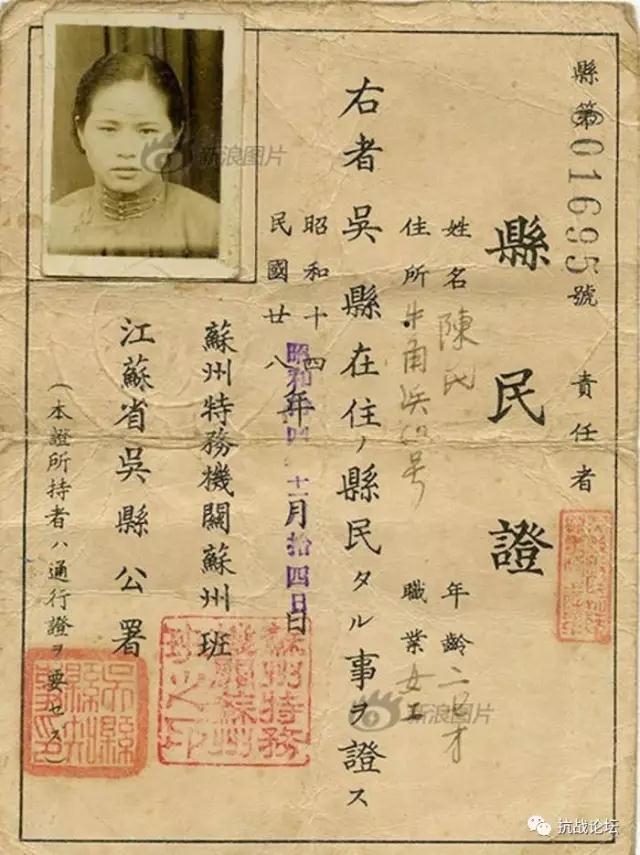 縣第001695號
責任者
縣民證
姓名 陳氏
年齡 二
才
住所 牛角浜
号
職業 女工
右者吳縣在住ノ縣民タル事ヲ證ス
昭和十四
民國廿八
年十一月拾四日
蘇州特務機關蘇州班
江蘇省吳縣公署
(本證所持者ハ通行證ヲ要セス)
蘇州特務機關蘇州班之印
吳縣縣知事印
新浪图片
新浪图片
抗战论坛